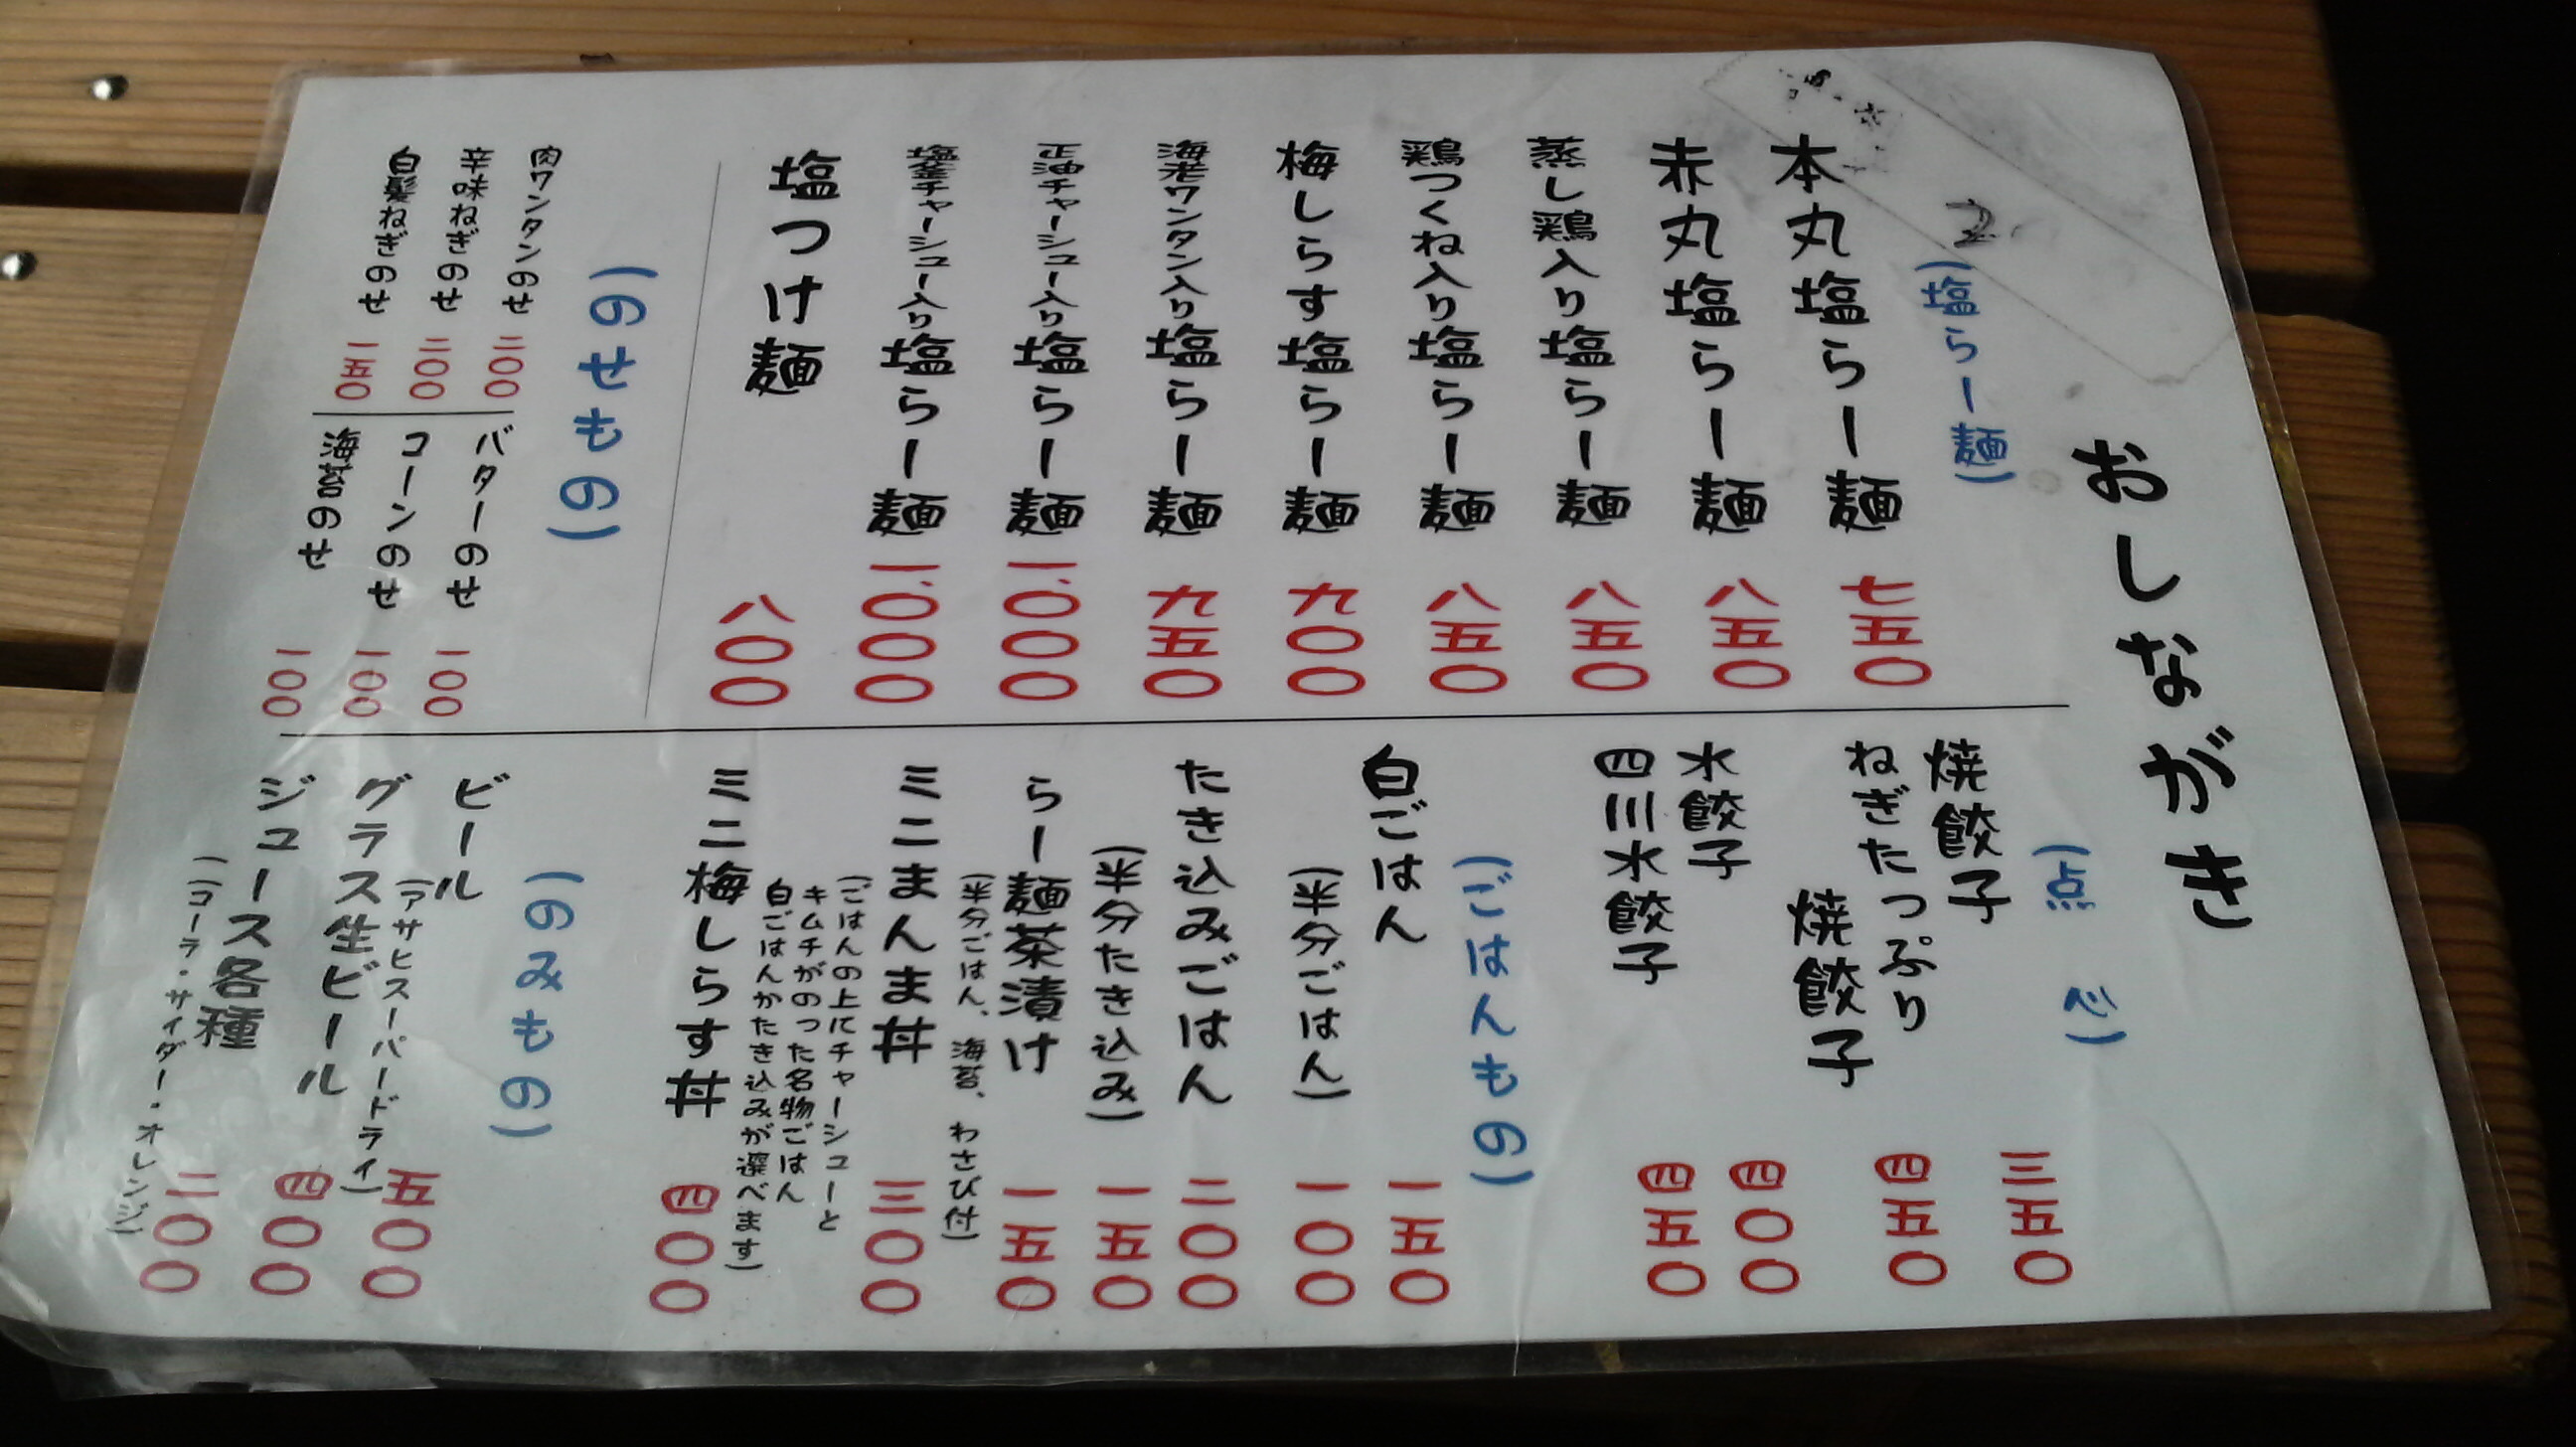 おしながき
(塩らー麺)
本丸塩らー麺 七五〇
赤丸塩らー麺 八五〇
蒸し鶏入り塩らー麺 八五〇
鶏つくね入り塩らー麺 八五〇
梅しらす塩らー麺 九〇〇
海老ワンタン入り塩らー麺 九五〇
正油チャーシュー入り塩らー麺 一、〇〇〇
塩釜チャーシュー入り塩らー麺 一、〇〇〇
塩つけ麺 八〇〇
(のせもの)
肉ワンタンのせ 二〇〇
辛味ねぎのせ 二〇〇
白髪ねぎのせ 一五〇
バターのせ 一〇〇
コーンのせ 一〇〇
海苔のせ 一〇〇
(点 心)
焼餃子 三五〇
ねぎたっぷり
焼餃子 四五〇
水餃子 四〇〇
四川水餃子 四五〇
(ごはんもの)
白ごはん 一五〇
(半分ごはん) 一〇〇
たき込みごはん 二〇〇
(半分たき込み) 一五〇
らー麺茶漬け 一五〇
(半分ごはん、海苔、わさび付)
ミニまんま丼 三〇〇
(ごはんの上にチャーシューと
キムチがのった名物ごはん
白ごはんかたき込みが選べます)
ミニ梅しらす丼 四〇〇
(のみもの)
ビール 五〇〇
(アサヒスーパードライ)
グラス生ビール 四〇〇
ジュース各種 二〇〇
(コーラ・サイダー・オレンジ)